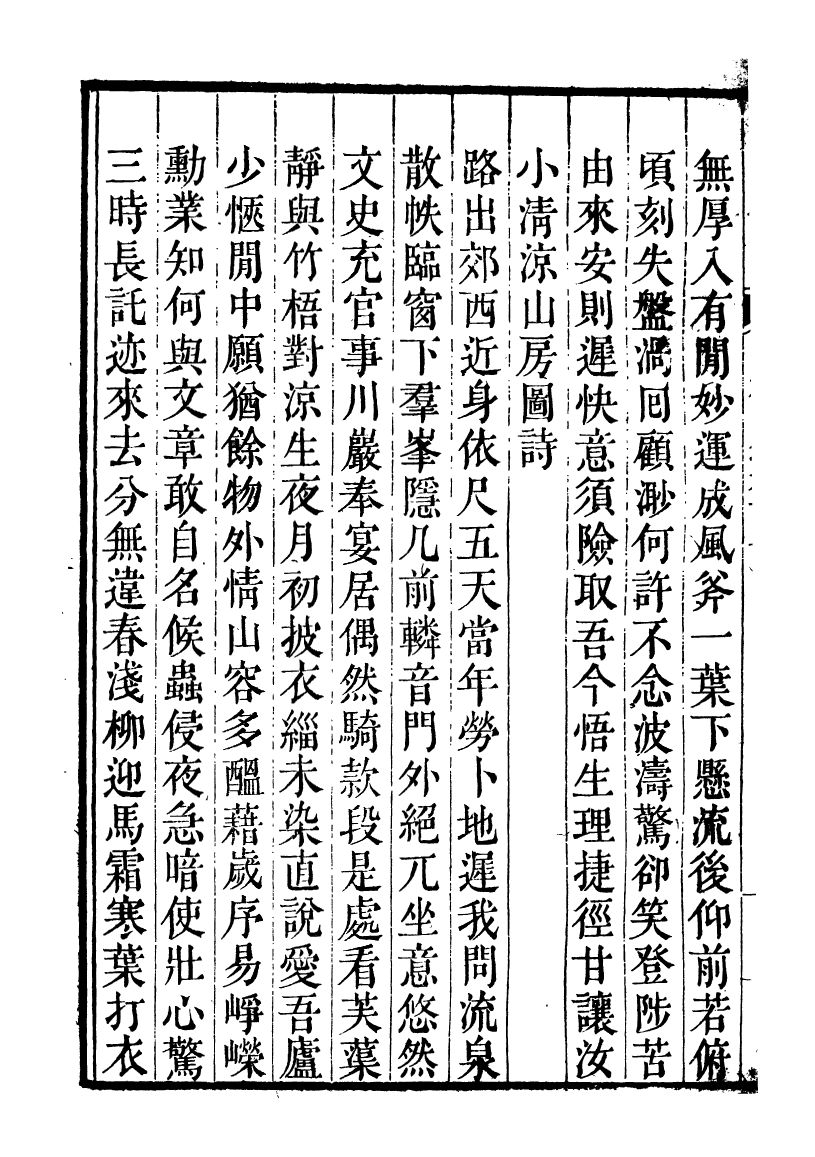 無厚入有閒妙運成風斧一葉下懸流後仰前若俯
頃刻失盤渦回顧渺何許不念波濤驚卻笑登陟苦
由來安則遲快意須險取吾今悟生理捷徑甘讓汝
小清涼山房圖詩
路出郊西近身依尺五天當年勞卜地遲我問流泉
散帙臨窗下羣峯隱几前轔音門外絕兀坐意悠然
文史充官事川巖奉宴居偶然騎款段是處看芙蕖
靜與竹梧對涼生夜月初披衣緇未染直說愛吾廬
少愜閒中願猶餘物外情山容多醞藉歲序易崢嶸
勳業知何與文章敢自名候蟲侵夜急暗使壯心驚
三時長託迹來去分無違春淺柳迎馬霜寒葉打衣